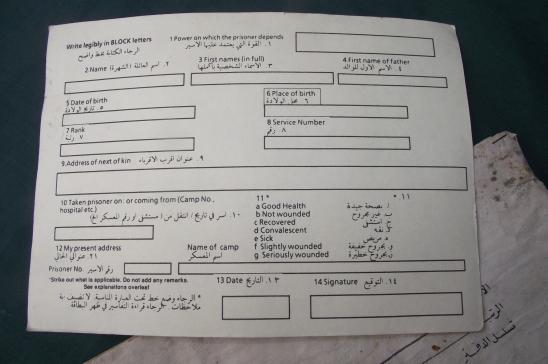 Write legibly in BLOCK letters
الرجاء الكتابة بخط واضح
1 Power on which the prisoner depends
١. القوة التي يعتمد عليها الاسير
2 Name ٢. اسم العائلة (الشهرة)
3 First names (in full)
٣. الاسماء الشخصية بأكملها
4 First name of father
٤. الاسم الاول للوالد
5 Date of birth
٥. تاريخ الولادة
6 Place of birth
٦. محل الولادة
7 Rank
٧. رتبة
8 Service Number
٨. رقم
9. Address of next of kin ٩. عنوان اقرب الاقرباء
10 Taken prisoner on: or coming from (Camp No., hospital etc.)
١٠. اسر في تاريخ / انتقل من (مستشفى او رقم المعسكر الخ)
11 * ١١ *
a Good Health ا. بصحة جيدة
b Not wounded ب. غير مجروح
c Recovered
d Convalescent
e Sick مريض
f Slightly wounded و. بجروح خفيفة
g Seriously wounded بجروح خطيرة
12 My present address
عنواني الحالي
Name of camp
اسم المعسكر
Prisoner No. رقم الاسير
*Strike out what is applicable. Do not add any remarks.
See explanations overleaf
* الرجاء وضع خط تحت العبارة المناسبة. لا تضف اية
ملاحظات. الرجاء قراءة التفاسير في ظهر البطاقة
13 Date ١٣. التاريخ
14 Signature ١٤. التوقيع